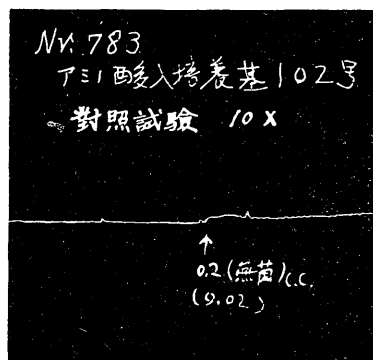 Nr. 783
アミノ酸入培養基102号
對照試驗 10 X
↑
0.2(無菌)c.c.
(0.02)